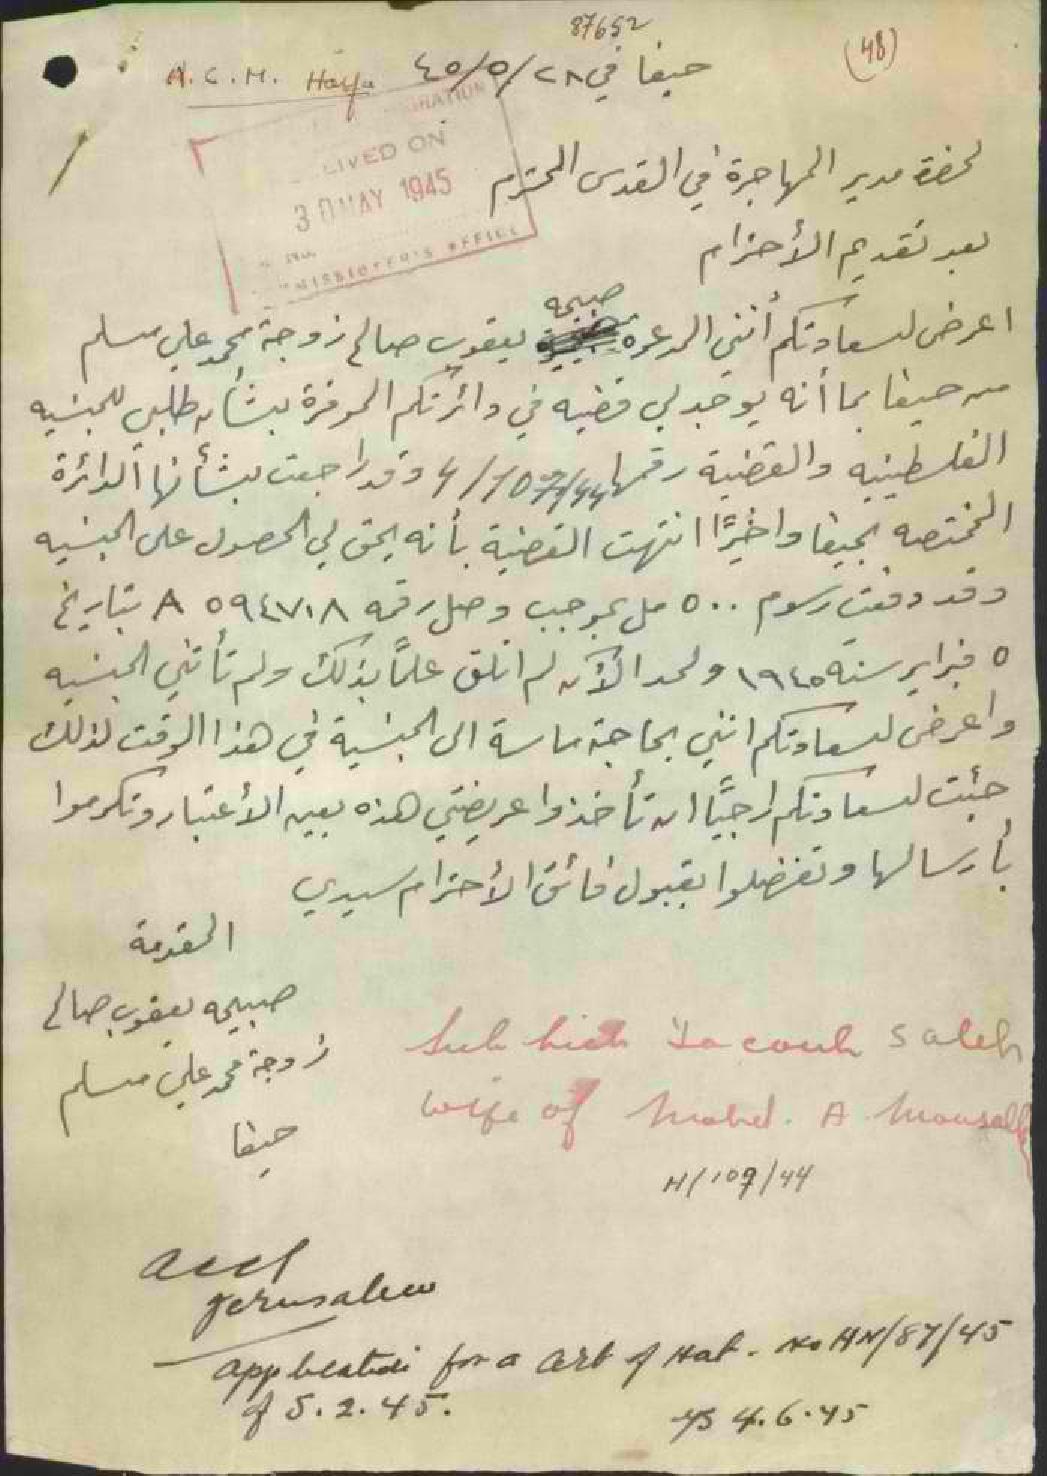 87652
(48)
A.C.M. Haifa حيفا في ٢٨/٥/٤٥
MIGRATION
EIVED ON
30 MAY 1945
MISSIONER'S OFFICE
لحضرة مدير المهاجرة في القدس المحترم
بعد تقديم الأحترام
صبيحه
اعرض لسعادتكم أنني المدعوه يعقوب صالح زوجة محمد علي مسلم
من حيفا بما أنه يوجد لي قضيه في دائرتكم الموقرة بشأن طلبي للجنسيه
الفلسطينيه والقضية رقمها H/109/44 وقد راجعت بشأنها الدائرة
المختصه بحيفا واخيرًا انتهت القضية بأنه يحق لي الحصول على الجنسيه
وقد دفعت رسوم ٥٠٠ مل بموجب وصل رقم A ٥٩٤٧١٨ بتاريخ
٥ فبراير سنة ١٩٤٥ ولحد الآن لم اتلق علمًا بذلك ولم تأتني الجنسيه
واعرض لسعادتكم انني بحاجة ماسة الى الجنسية في هذا الوقت لذلك
جئت لسعادتكم راجيًا ان تأخذوا عريضتي هذه بعين الأعتبار وتكرموا
بأرسالها وتفضلوا بقبول فائق الأحترام سيدي
المقدمة
صبيحه يعقوب صالح
زوجة محمد علي مسلم
حيفا
Subhieh Yacoub Saleh
wife of Mohd. A. Mousallem
H/109/44
Jerusalem
Application for a Cert of Nat. No HN/87/45
of 5.2.45.
4.6.45